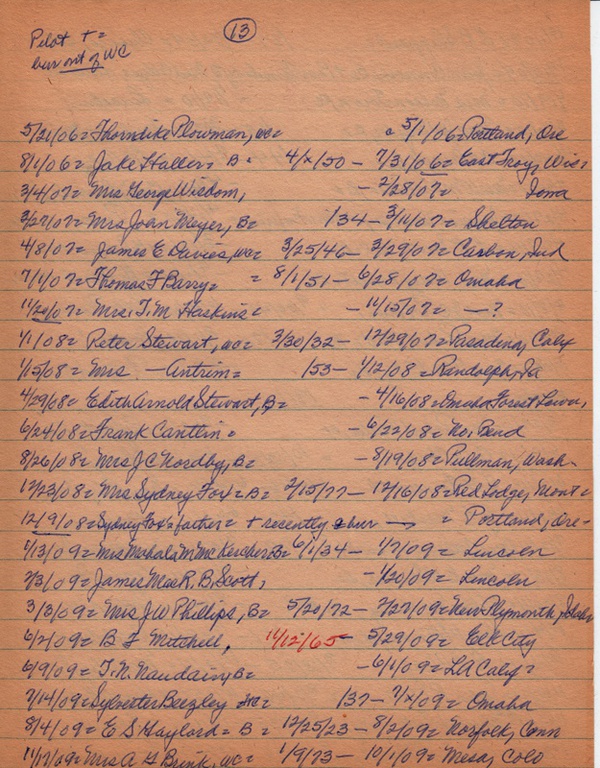 13
Pilot + =
bur out of WC
5/21/06 = Thorndike Plowman, wc = = 5/1/06 = Portland, Ore
8/1/06 = Jake Haller = B = 4/x/50 - 7/31/06 = East Troy, Wis =
3/4/07 = Mrs George Wisdom, - 2/28/07 = Iowa
3/27/07 = Mrs Joan Meyer, B = /34 - 3/14/07 = Skelton
4/8/07 = James E Davies, wc = 3/25/46 - 3/29/07 = Carbon, Ind
7/1/07 = Thomas F Barry = = 8/1/51 - 6/28/07 = Omaha
11/20/07 = Mrs. T. M Haskins = - 11/15/07 = - ?
1/1/08 = Peter Stewart, wc = 3/30/32 - 12/29/07 = Pasadena, Calif
1/15/08 = Mrs - Antrim = /53 - 1/12/08 = Randolph, Ia
4/29/08 = Edith Arnold Stewart, B = - 4/16/08 = Omaha Forest Lawn,
6/24/08 = Frank Cantlin = - 6/22/08 = No. Bend
8/26/08 = Mrs J C Nordby, B = - 8/19/08 = Pullman, Wash -
12/23/08 = Mrs Sydney Fox = B = 2/15/77 - 12/16/08 = Red Lodge, Mont =
12/9/08 = Sydney Fox's father = + recently bur = Portland, Ore -
1/13/09 = Mrs Mahala M McKercher B = 6/1/34 - 1/7/09 = Lincoln
2/3/09 = James Mac R. B. Scott, - 1/20/09 = Lincoln
3/3/09 = Mrs J W Phillips, B = 5/20/72 - 2/27/09 = New Plymouth, Idaho
6/2/09 = B F Mitchell, 11/12/65 - 5/29/09 = Elk City
6/9/09 = T. N. Naudain, B = - 6/1/09 = LA Calif =
7/14/09 = Sylvester Beezley = /37 - 7/x/09 = Omaha
8/4/09 = E S Gaylord = B = 12/25/23 - 8/2/09 = Norfolk, Conn
11/17/09 = Mrs A G Brink, wc = 1/9/73 - 10/1/09 = Mesa, Colo